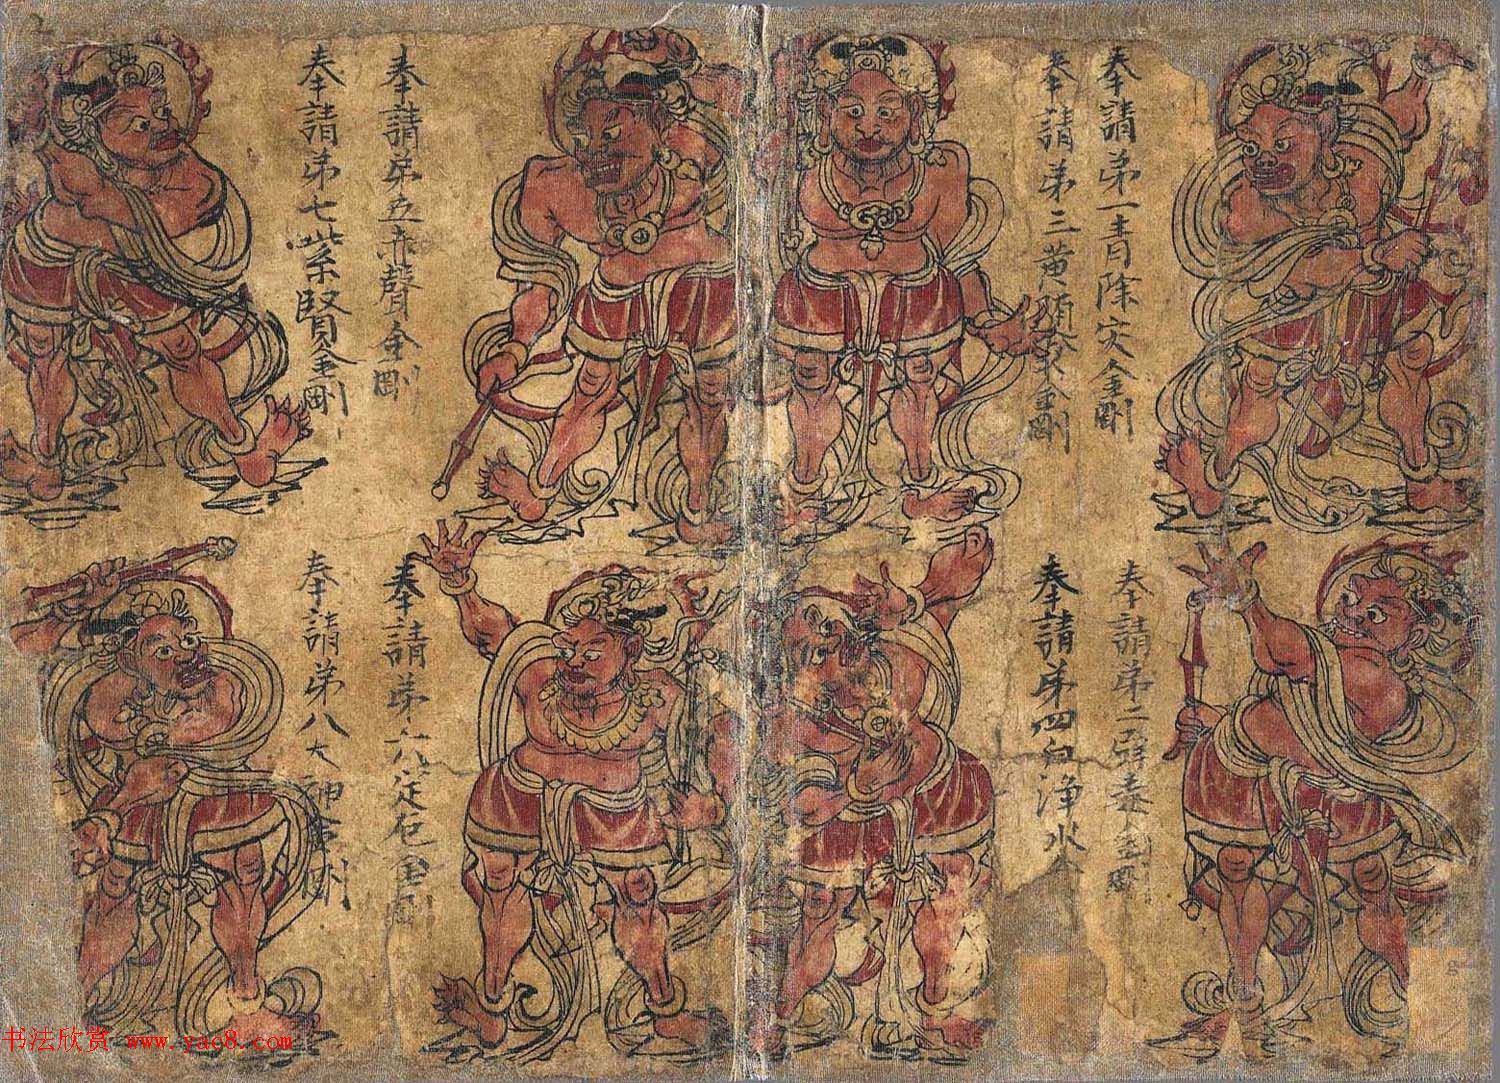 奉請弟一青除灾金剛
奉請弟二辟毒金剛
奉請弟三黃隨求金剛
奉請弟四白淨水
奉請弟五赤聲金剛
奉請弟六定厄金剛
奉請弟七紫賢金剛
奉請弟八大神金剛
书法欣赏 www.yac8.com